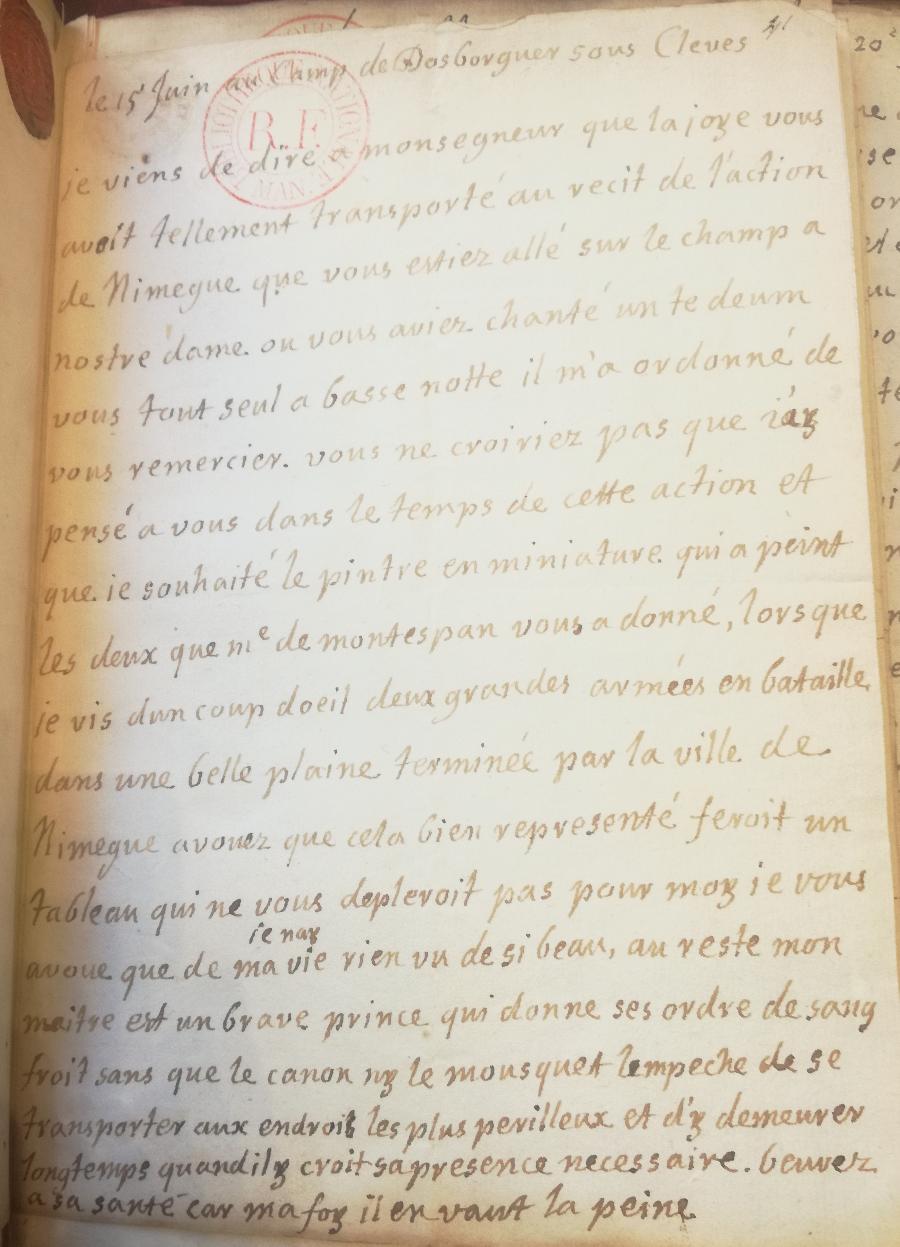 41
le 15 Juin au Camp de Dosborguer sous Cleves
je viens de dire a monsegneur que la joye vous
avoit tellement transporté au recit de l'action
de Nimegue que vous estiez allé sur le champ a
nostre dame. ou vous aviez chanté un te deum
vous tout seul a basse notte il m'a ordonné de
vous remercier. vous ne croiriez pas que i'ay
pensé a vous dans le temps de cette action et
que ie souhaité le pintre en miniature qui a peint
les deux que me de montespan vous a donné, lorsque
je vis dun coup doeil deux grandes armées en bataille
dans une belle plaine terminée par la ville de
Nimegue avouez que cela bien representé feroit un
tableau qui ne vous depleroit pas pour moy ie vous
ie nay
avoue que de ma vie rien vu de si beau, au reste mon
maitre est un brave prince qui donne ses ordre de sang
froit sans que le canon ny le mousquet lempeche de se
transporter aux endroit les plus perilleux et d'y demeurer
longtemps quandily croit sa presence necessaire. beuvez
a sa santé car ma foy il en vaut la peine
BIBLIOTHEQUE NATIONALE
R.F.
MAN.
20